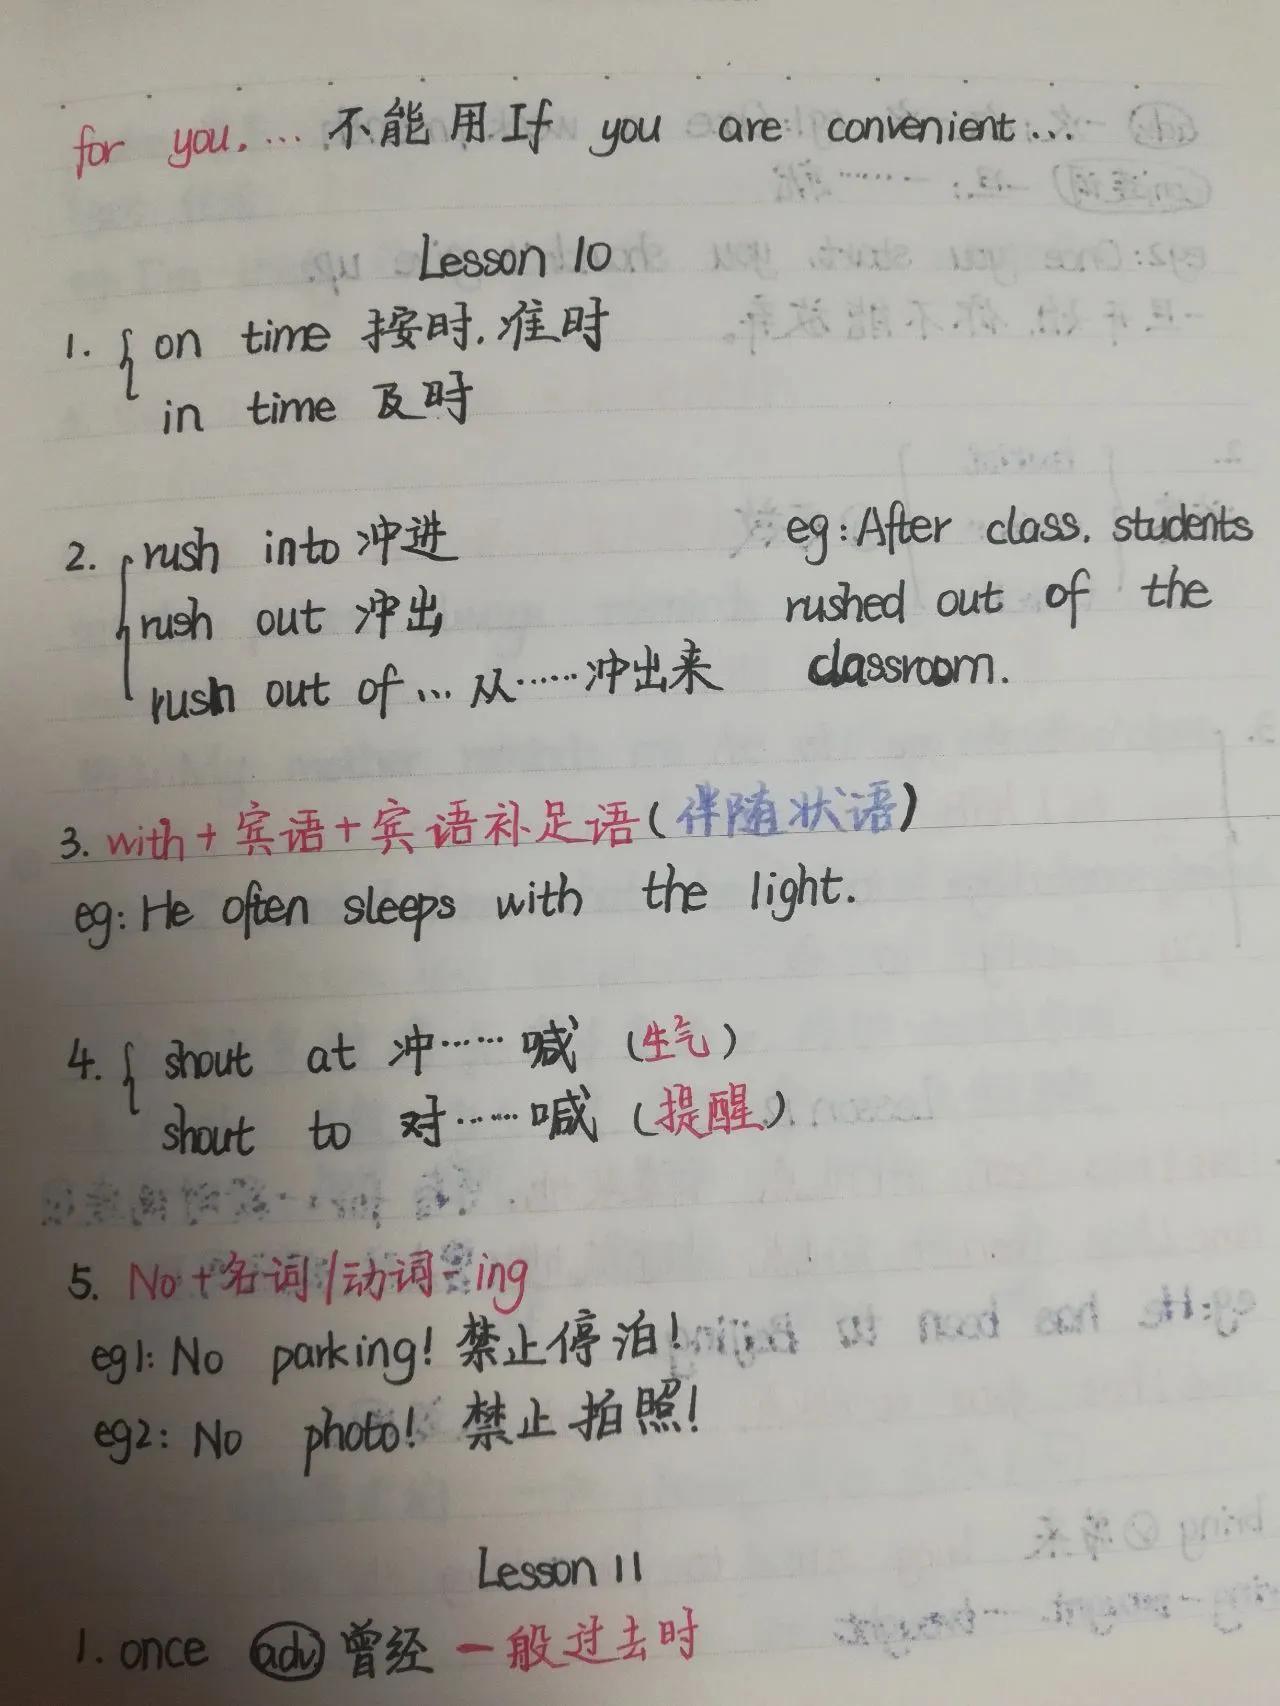 for you, ... 不能用If you are convenient...
Lesson 10
1. { on time 按时, 准时
in time 及时
2. { rush into 冲进
rush out 冲出
rush out of ... 从……冲出来
eg: After class, students
rushed out of the
classroom.
3. with + 宾语 + 宾语补足语 (伴随状语)
eg: He often sleeps with the light.
4. { shout at 冲……喊 (生气)
shout to 对……喊 (提醒)
5. No + 名词/动词-ing
eg1: No parking! 禁止停泊!
eg2: No photo! 禁止拍照!
Lesson 11
1. once adv 曾经 一般过去时